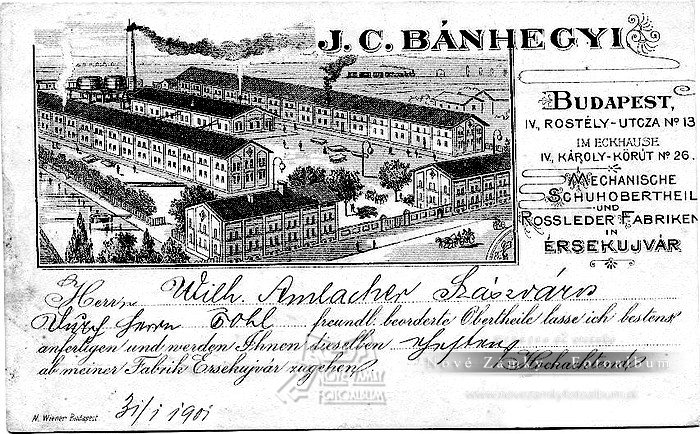 J. C. BÁNHEGYI
BUDAPEST,
IV., ROSTÉLY-UTCZA No 13
IM ECKHAUSE
IV, KÁROLY-KÖRÚT No 26.
MECHANISCHE
SCHUHOBERTHEIL
UND
ROSSLEDER FABRIKEN
IN
ÉRSEKUJVÁR
Herrn Wilh. Amlacher Szászváros
Durch Herrn Bohl freundl. beorderte Obertheile lasse ich bestens
anfertigen und werden Ihnen dieselben
ab meiner Fabrik Érsekujvár zugehen. Hochachtend
31/1 1901
N. Wiener Budapest
Nové Zámky Fotoalbum
www.novezamkyfotoalbum.sk
FOTOALBUM